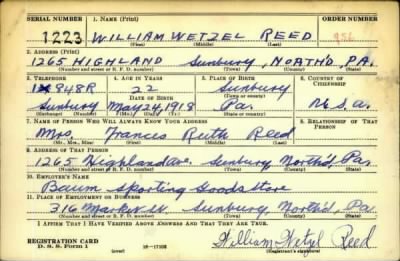 SERIAL NUMBER 1. NAME (Print) ORDER NUMBER
1223 WILLIAM WETZEL REED 856
(First) (Middle) (Last)
2. ADDRESS (Print)
1265 HIGHLAND Sunbury, NORTH'D, PA.
(Number and street or R. F. D. number) (Town) (County) (State)
3. TELEPHONE 4. AGE IN YEARS 5. PLACE OF BIRTH 6. COUNTRY OF CITIZENSHIP
848R 22 Sunbury
DATE OF BIRTH (Town or county)
Sunbury May 24, 1918 Pa. U.S.A.
(Exchange) (Number) (Mo.) (Day) (Yr.) (State or country)
7. NAME OF PERSON WHO WILL ALWAYS KNOW YOUR ADDRESS 8. RELATIONSHIP OF THAT PERSON
Mrs. Frances Ruth Reed
(Mr., Mrs., Miss) (First) (Middle) (Last)
9. ADDRESS OF THAT PERSON
1265 Highland Ave. Sunbury, North'd, Pa.
(Number and street or R. F. D. number) (Town) (County) (State)
10. EMPLOYER'S NAME
Baum Sporting Goods Store
11. PLACE OF EMPLOYMENT OR BUSINESS
316 Market St. Sunbury, North'd, Pa.
(Number and street or R. F. D. number) (Town) (County) (State)
I AFFIRM THAT I HAVE VERIFIED ABOVE ANSWERS AND THAT THEY ARE TRUE.
William Wetzel Reed
REGISTRATION CARD
D. S. S. Form 1 (over) (Registrant's signature)